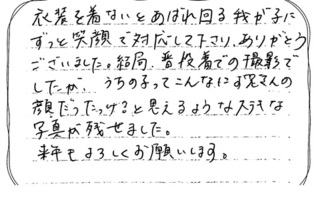 衣装を着ないとあばれ回る我が子に
ずっと笑顔で対応して下さり、ありがとう
ございました。結局、普段着での撮影で
したが、うちの子ってこんなに さんの
顔だったっけ?と思えるようなステキな
写真が残せました。
来年もよろしくお願いします。